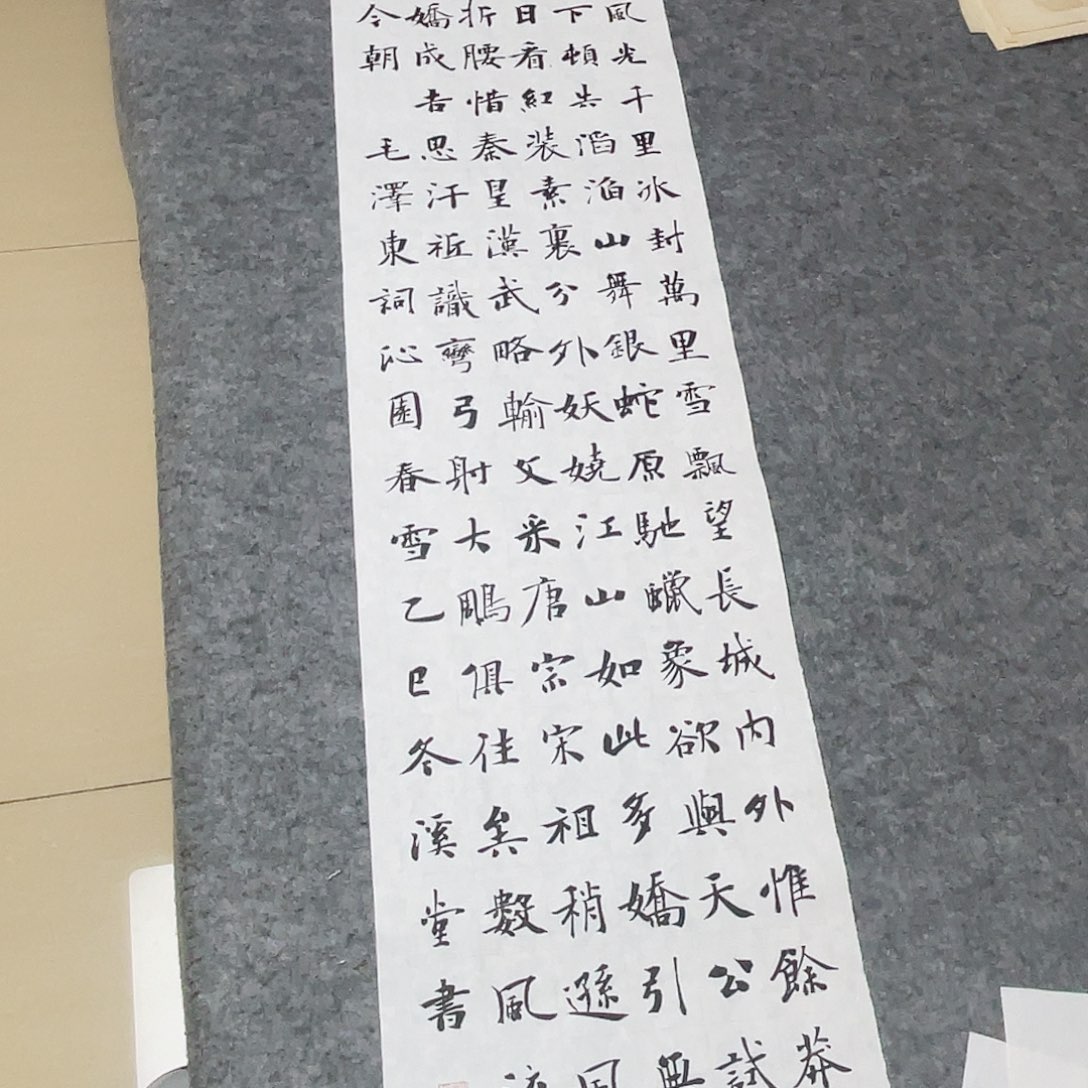 風光千里冰封萬里雪飄望長城內外惟餘莽
下頓失滔滔山舞銀蛇原馳蠟象欲與天公試
日看紅裝素裹分外妖嬈江山如此多嬌引無
折腰惜秦皇漢武略輸文采唐宗宋祖稍遜風
嬌成吉思汗祗識彎弓射大鵰俱往矣數風流
今朝 毛澤東詞沁園春雪乙巳冬溪堂書